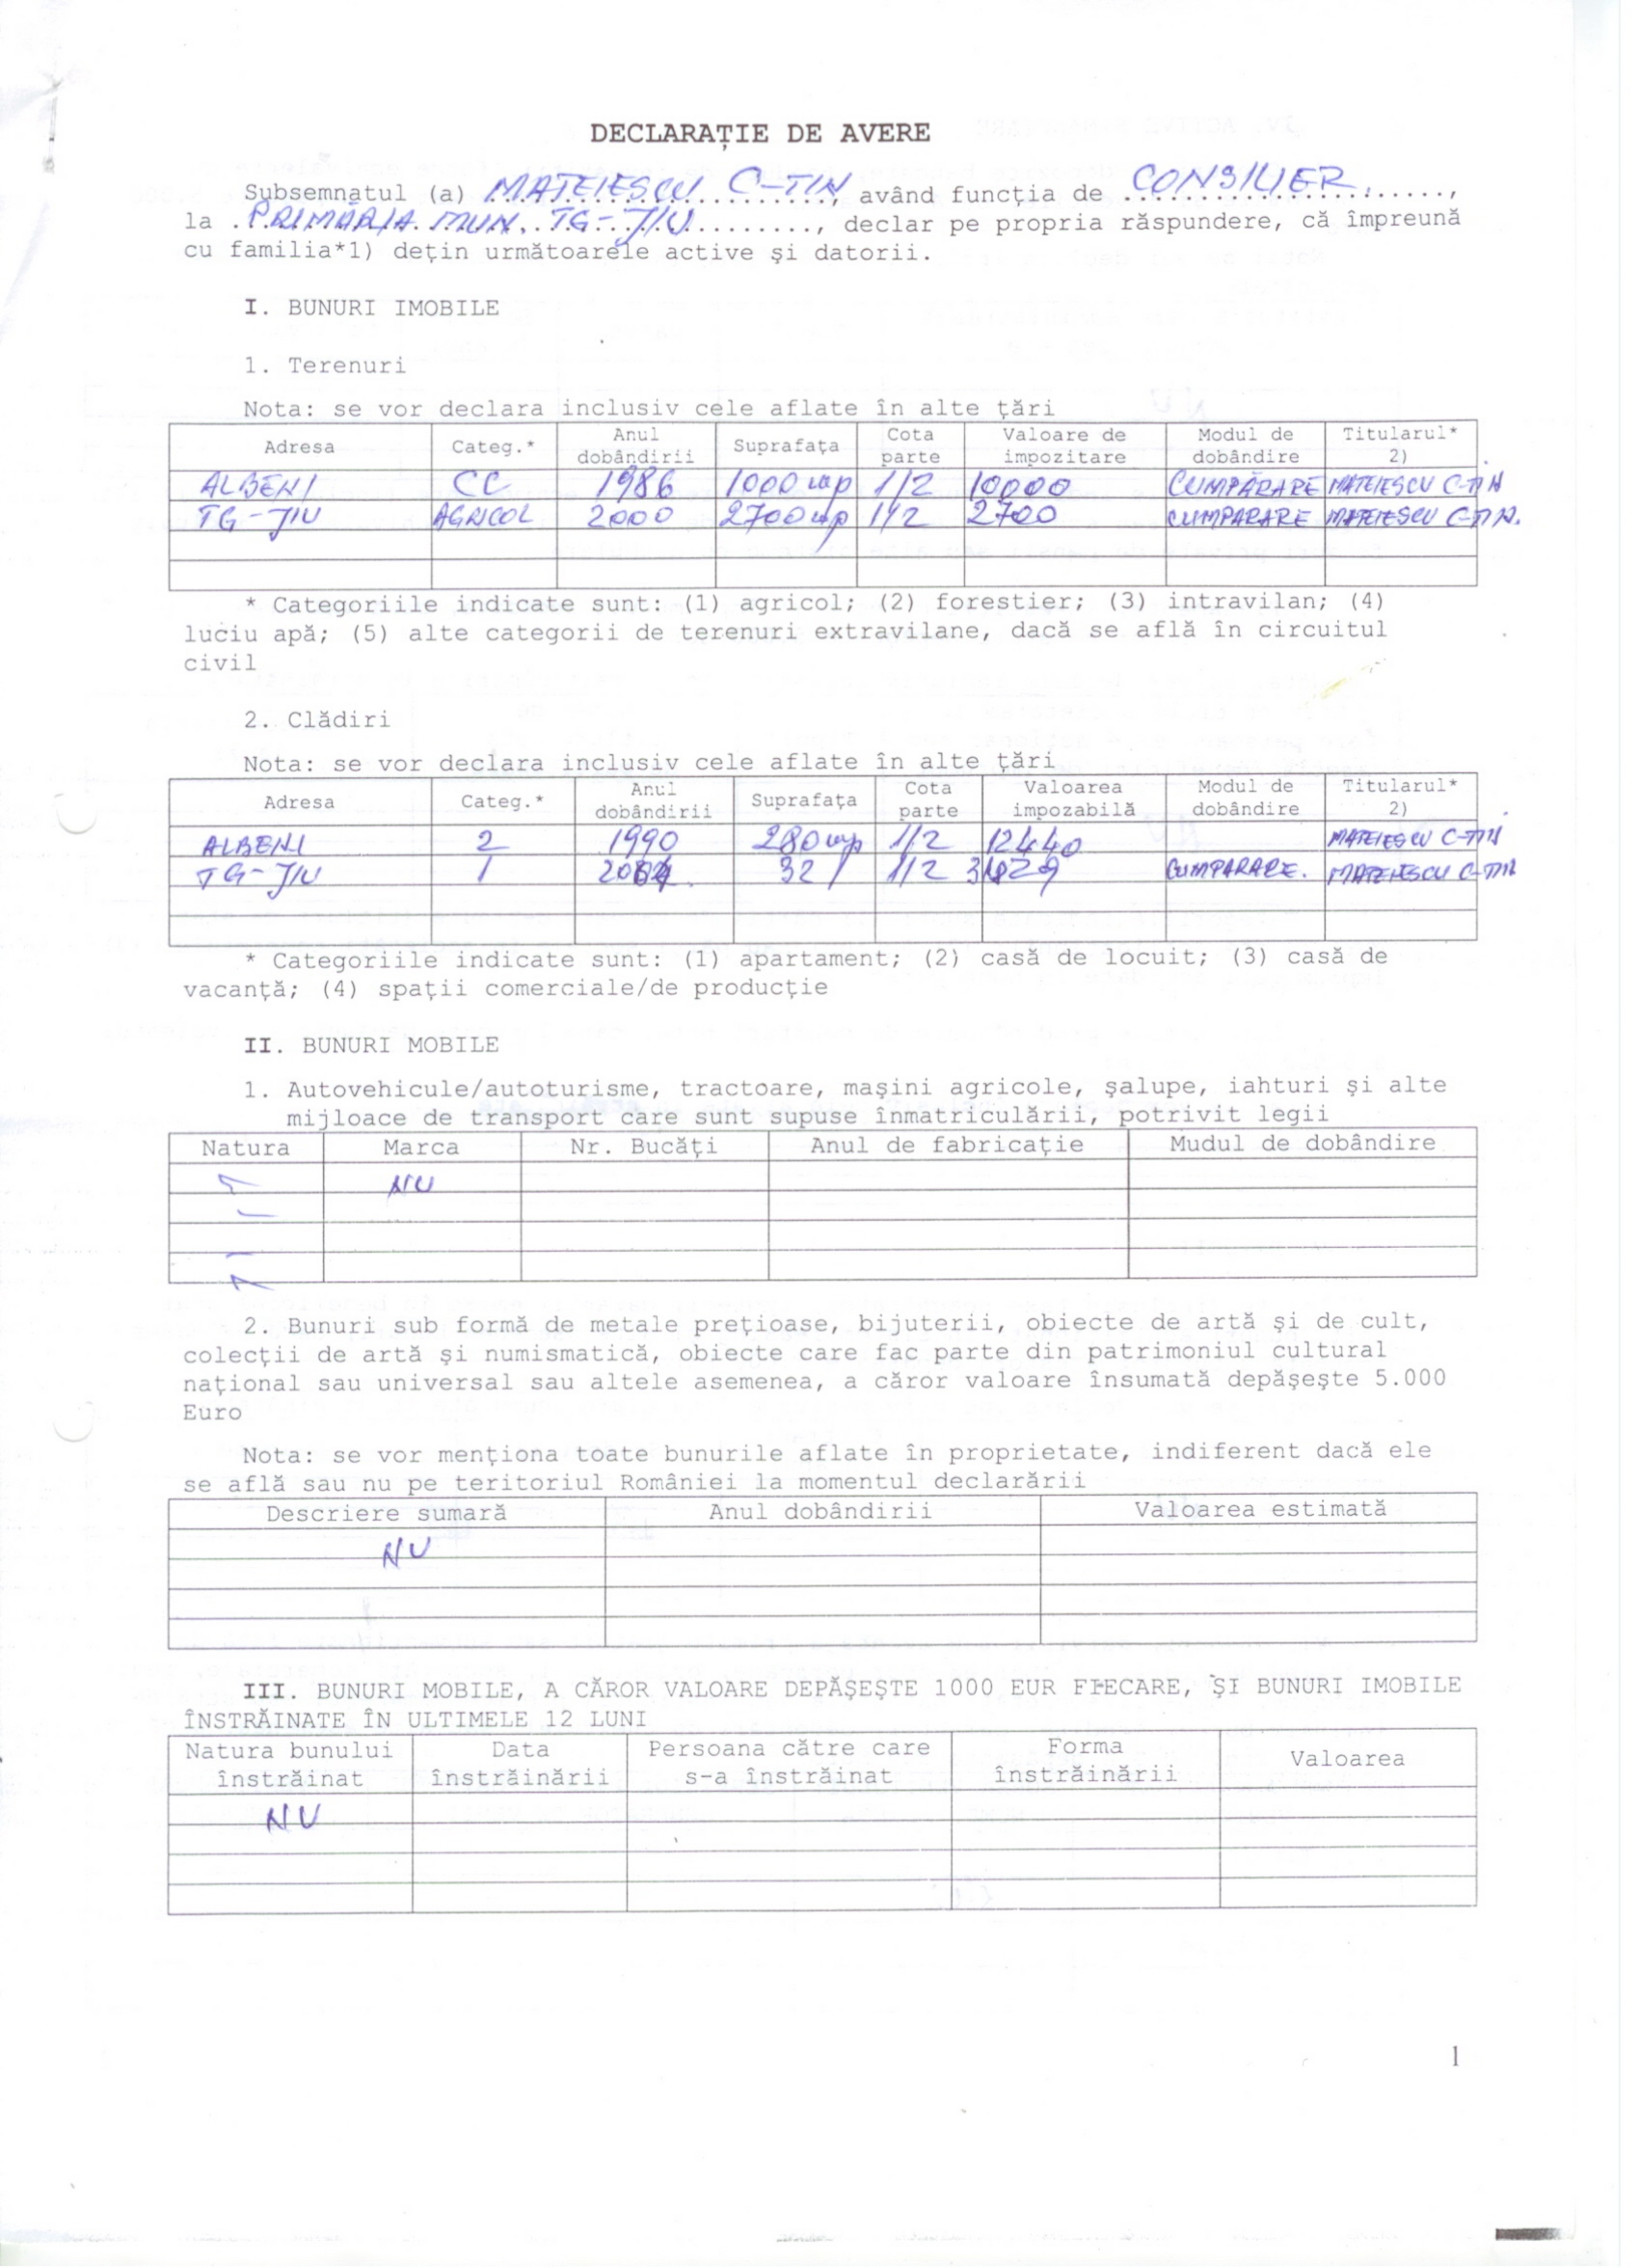 DECLARAŢIE DE AVERE
Subsemnatul (a) MATEIESCU C-TIN, având funcţia de CONSILIER,
la PRIMĂRIA MUN. TG-JIU, declar pe propria răspundere, că împreună
cu familia*1) deţin următoarele active şi datorii.
I. BUNURI IMOBILE
1. Terenuri
Nota: se vor declara inclusiv cele aflate în alte ţări
Adresa Categ.* Anul dobândirii Suprafaţa Cota parte Valoare de impozitare Modul de dobândire Titularul* 2)
ALBENI CC 1986 1000 mp 1/2 10000 CUMPĂRARE MATEIESCU C-TIN
TG-JIU AGRICOL 2000 2700 mp 1/2 2700 CUMPARARE MATEIESCU C-TIN.
* Categoriile indicate sunt: (1) agricol; (2) forestier; (3) intravilan; (4)
luciu apă; (5) alte categorii de terenuri extravilane, dacă se află în circuitul
civil
2. Clădiri
Nota: se vor declara inclusiv cele aflate în alte ţări
Adresa Categ.* Anul dobândirii Suprafaţa Cota parte Valoarea impozabilă Modul de dobândire Titularul* 2)
ALBENI 2 1990 280 mp 1/2 12440 MATEIESCU C-TIN
TG-JIU 1 32 1/2 CUMPARARE. MATEIESCU C-TIN
* Categoriile indicate sunt: (1) apartament; (2) casă de locuit; (3) casă de
vacanţă; (4) spaţii comerciale/de producţie
II. BUNURI MOBILE
1. Autovehicule/autoturisme, tractoare, maşini agricole, şalupe, iahturi şi alte
mijloace de transport care sunt supuse înmatriculării, potrivit legii
Natura Marca Nr. Bucăţi Anul de fabricaţie Mudul de dobândire
NU
2. Bunuri sub formă de metale preţioase, bijuterii, obiecte de artă şi de cult,
colecţii de artă şi numismatică, obiecte care fac parte din patrimoniul cultural
naţional sau universal sau altele asemenea, a căror valoare însumată depăşeşte 5.000
Euro
Nota: se vor menţiona toate bunurile aflate în proprietate, indiferent dacă ele
se află sau nu pe teritoriul României la momentul declarării
Descriere sumară Anul dobândirii Valoarea estimată
NU
III. BUNURI MOBILE, A CĂROR VALOARE DEPĂŞEŞTE 1000 EUR FIECARE, ŞI BUNURI IMOBILE
ÎNSTRĂINATE ÎN ULTIMELE 12 LUNI
Natura bunului înstrăinat Data înstrăinării Persoana către care s-a înstrăinat Forma înstrăinării Valoarea
NU
1